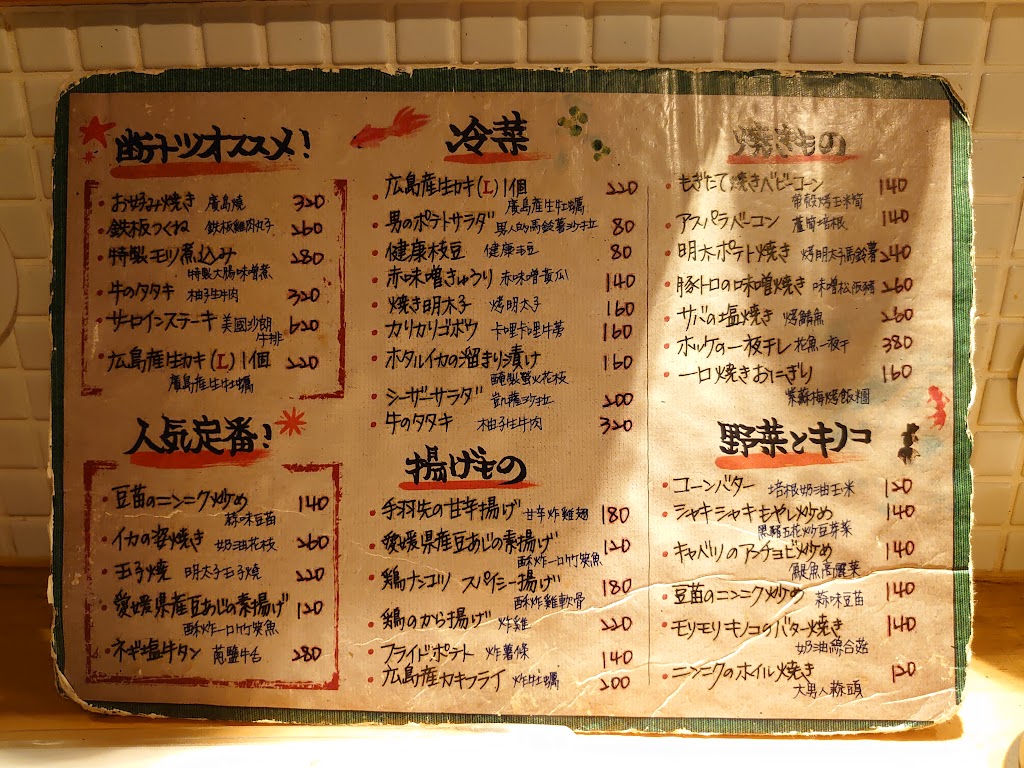 断トツオススメ!
お好み焼き 廣島燒 320
鉄板つくね 鉄板雞肉丸子 260
特製モツ煮込み 280
特製大腸味噌煮
牛のタタキ 柚子生牛肉 320
サーロインステーキ 美國沙朗牛排 620
広島産生カキ(L)1個 220
廣島産生牡蠣
人気定番!
豆苗のニンニク炒め 140
蒜味豆苗
イカの姿焼き 奶油花枝 260
玉子焼 明太子玉子燒 220
愛媛県産豆あじの素揚げ 120
酥炸一口竹筴魚
ネギ塩牛タン 蔥鹽牛舌 280
冷菜
広島産生カキ(L)1個 220
廣島産生牡蠣
男のポテトサラダ 男人的馬鈴薯沙拉 80
健康枝豆 健康毛豆 80
赤味噌きゅうり 赤味噌黄瓜 140
焼き明太子 烤明太子 160
カリカリゴボウ 卡哩卡哩牛蒡 160
ホタルイカの溜まり漬け 160
醃製螢火花枝
シーザーサラダ 凱薩沙拉 200
牛のタタキ 柚子生牛肉 320
揚げもの
手羽先の甘辛揚げ 甘辛炸雞翅 180
愛媛県産豆あじの素揚げ 120
酥炸一口竹筴魚
鶏ナンコツ スパイシー揚げ 180
酥炸雞軟骨
鶏のから揚げ 炸雞 220
フライドポテト 炸薯條 140
広島産カキフライ 炸牡蠣 200
焼きもの
もぎたて焼きベビーコーン 140
帶殼烤玉米筍
アスパラベーコン 蘆筍培根 140
明太ポテト焼き 烤明太子馬鈴薯 240
豚トロの味噌焼き 味噌松阪豬 260
サバの塩焼き 烤鯖魚 260
ホッケの一夜干し 花魚一夜干 380
一口焼きおにぎり 160
紫蘇梅烤飯糰
野菜とキノコ
コーンバター 培根奶油玉米 120
シャキシャキもやし炒め 140
黑豬五花炒豆芽菜
キャベツのアンチョビ炒め 140
鯷魚高麗菜
豆苗のニンニク炒め 蒜味豆苗 140
モリモリキノコのバター焼き 140
奶油綜合菇
ニンニクのホイル焼き 120
大男人蒜頭